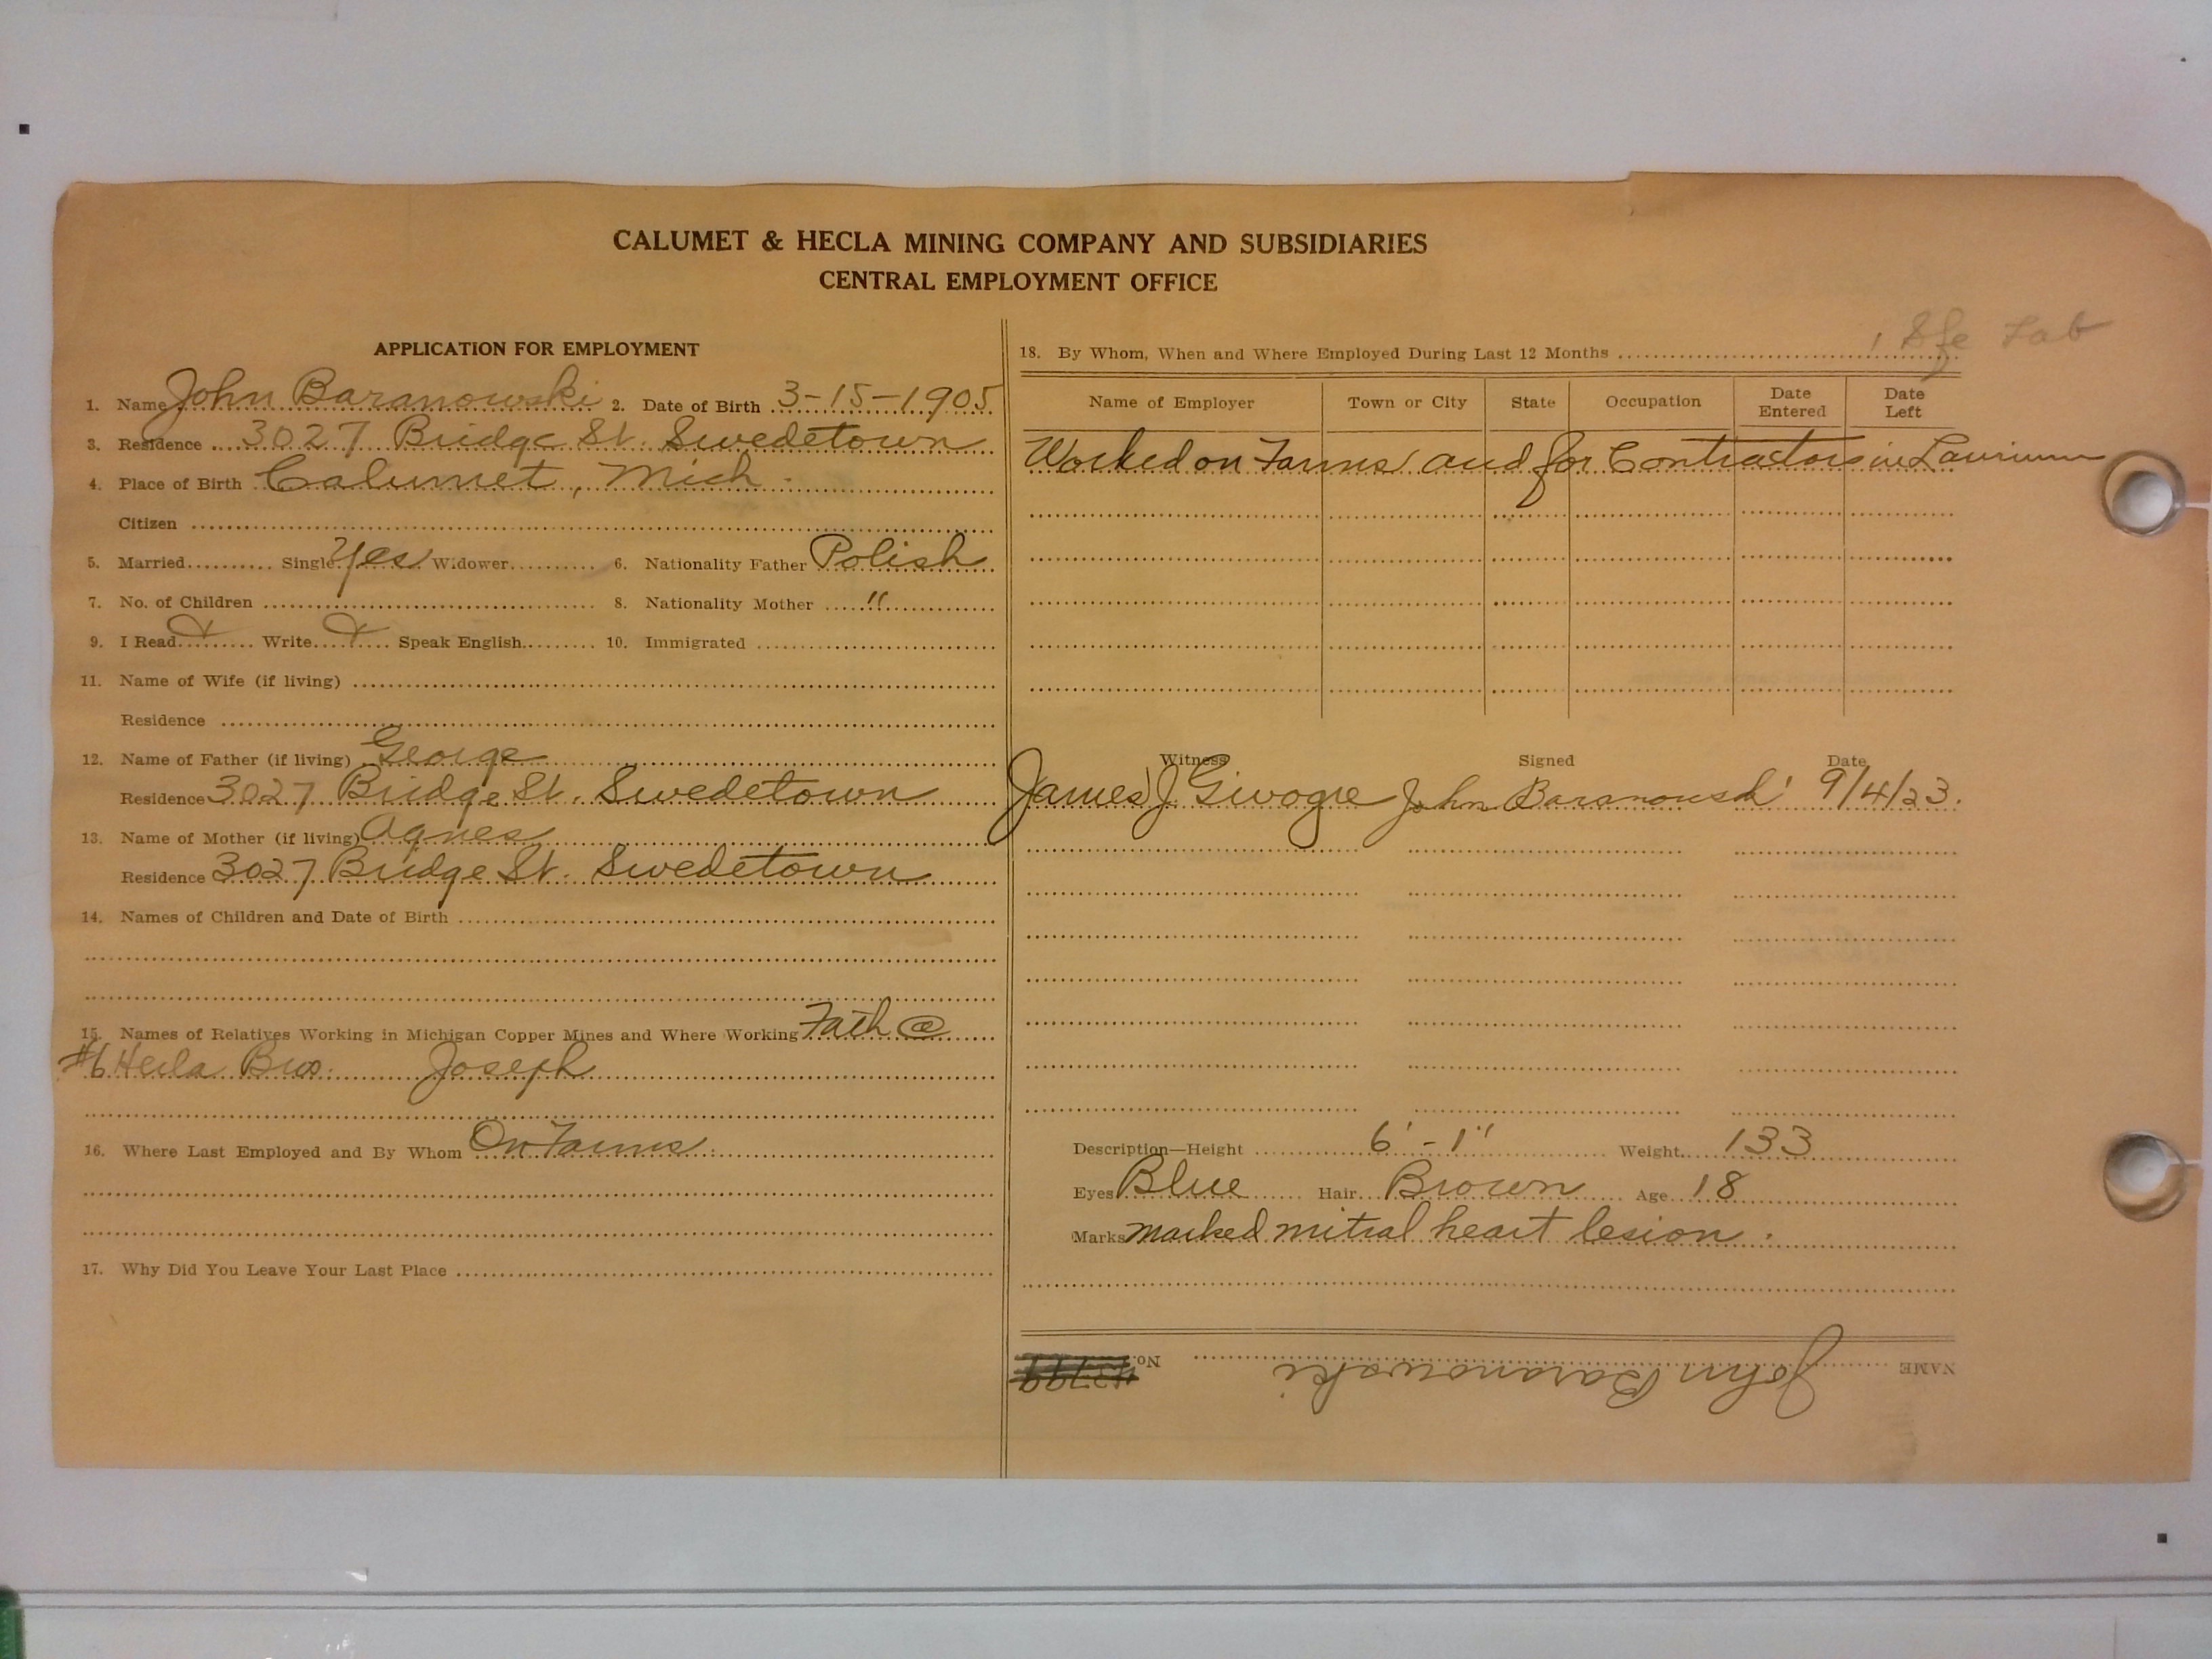 CALUMET & HECLA MINING COMPANY AND SUBSIDIARIES
CENTRAL EMPLOYMENT OFFICE
APPLICATION FOR EMPLOYMENT
1. Name John Baranowski 2. Date of Birth 3-15-1905
3. Residence 3027 Bridge St. Swedetown
4. Place of Birth Calumet, Mich
Citizen
5. Married Single Yes Widower 6. Nationality Father Polish
7. No. of Children 8. Nationality Mother "
9. I Read Write Speak English 10. Immigrated
11. Name of Wife (if living)
Residence
12. Name of Father (if living) George
Residence 3027 Bridge St. Swedetown
13. Name of Mother (if living) Agnes
Residence 3027 Bridge St. Swedetown
14. Names of Children and Date of Birth
15. Names of Relatives Working in Michigan Copper Mines and Where Working Fath @
#6 Hecla Bro. Joseph
16. Where Last Employed and By Whom On Farms
17. Why Did You Leave Your Last Place
18. By Whom, When and Where Employed During Last 12 Months
Name of Employer Town or City State Occupation Date Entered Date Left
Worked on Farms and for Contractors in Laurium
Witness Signed Date
James J. John Baranowski 9/4/23.
Description—Height 6'-1" Weight 133
Eyes Blue Hair Brown Age 18
Marks marked mitral heart lesion.
NAME John Baranowski No.